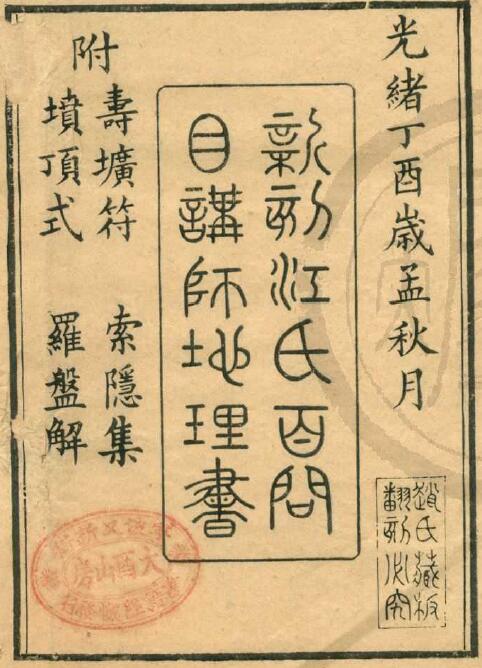 光緒丁酉歲孟秋月
趙氏藏板
翻刻必究
新刻江氏百問
目講師地理書
附
壽壙符 索隱集
墳頂式 羅盤解
大酉山房